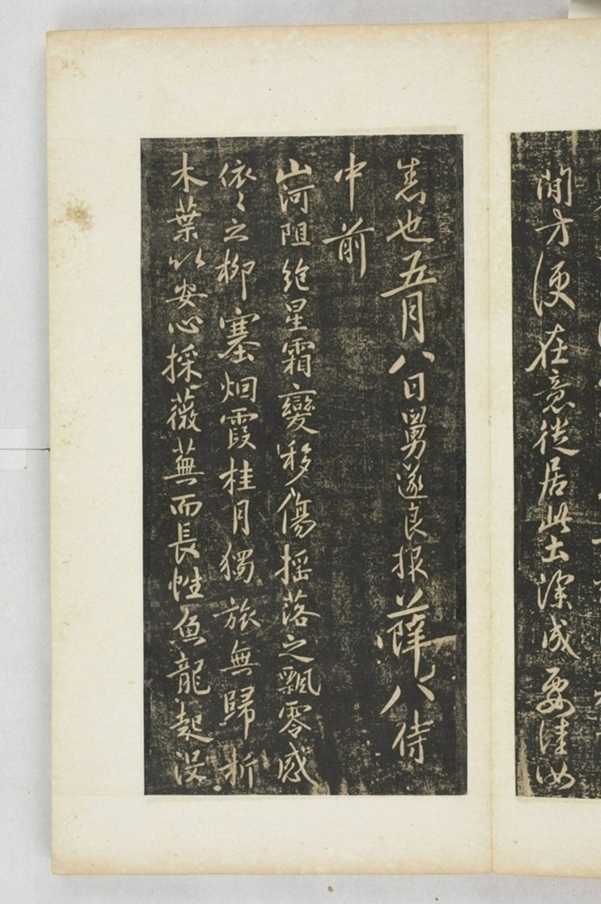 間方便在意從居此土深成要佳如
悉也五月八日舅遂良報薛八侍
中前
山河阻絶星霜變移傷搖落之飄零感
依々之柳塞烟霞桂月獨旅無歸折
木葉以安心採薇蕪而長性魚龍起没